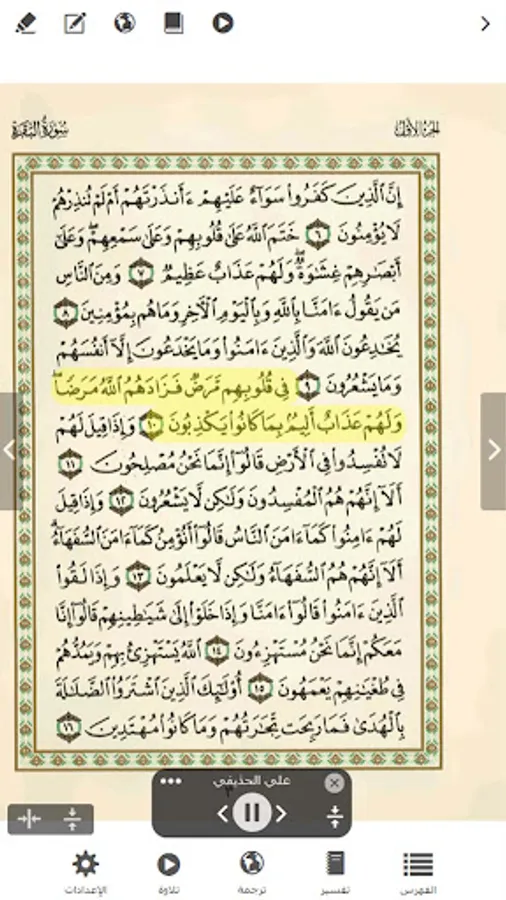 سُورَةُ البَقَرَةِ
الجزء الأول
إِنَّ ٱلَّذِينَ كَفَرُوا۟ سَوَآءٌ عَلَيْهِمْ ءَأَنذَرْتَهُمْ أَمْ لَمْ تُنذِرْهُمْ
لَا يُؤْمِنُونَ ٦ خَتَمَ ٱللَّهُ عَلَىٰ قُلُوبِهِمْ وَعَلَىٰ سَمْعِهِمْ ۖ وَعَلَىٰٓ
أَبْصَـٰرِهِمْ غِشَـٰوَةٌ ۖ وَلَهُمْ عَذَابٌ عَظِيمٌ ٧ وَمِنَ ٱلنَّاسِ
مَن يَقُولُ ءَامَنَّا بِٱللَّهِ وَبِٱلْيَوْمِ ٱلْـَٔاخِرِ وَمَا هُم بِمُؤْمِنِينَ ٨
يُخَـٰدِعُونَ ٱللَّهَ وَٱلَّذِينَ ءَامَنُوا۟ وَمَا يَخْدَعُونَ إِلَّآ أَنفُسَهُمْ
وَمَا يَشْعُرُونَ ٩ فِى قُلُوبِهِم مَّرَضٌ فَزَادَهُمُ ٱللَّهُ مَرَضًا ۖ
وَلَهُمْ عَذَابٌ أَلِيمٌۢ بِمَا كَانُوا۟ يَكْذِبُونَ ١٠ وَإِذَا قِيلَ لَهُمْ
لَا تُفْسِدُوا۟ فِى ٱلْأَرْضِ قَالُوٓا۟ إِنَّمَا نَحْنُ مُصْلِحُونَ ١١
أَلَآ إِنَّهُمْ هُمُ ٱلْمُفْسِدُونَ وَلَـٰكِن لَّا يَشْعُرُونَ ١٢ وَإِذَا قِيلَ
لَهُمْ ءَامِنُوا۟ كَمَآ ءَامَنَ ٱلنَّاسُ قَالُوٓا۟ أَنُؤْمِنُ كَمَآ ءَامَنَ ٱلسُّفَهَآءُ ۗ
أَلَآ إِنَّهُمْ هُمُ ٱلسُّفَهَآءُ وَلَـٰكِن لَّا يَعْلَمُونَ ١٣ وَإِذَا لَقُوا۟
ٱلَّذِينَ ءَامَنُوا۟ قَالُوٓا۟ ءَامَنَّا وَإِذَا خَلَوْا۟ إِلَىٰ شَيَـٰطِينِهِمْ قَالُوٓا۟ إِنَّا
مَعَكُمْ إِنَّمَا نَحْنُ مُسْتَهْزِءُونَ ١٤ ٱللَّهُ يَسْتَهْزِئُ بِهِمْ وَيَمُدُّهُمْ
فِى طُغْيَـٰنِهِمْ يَعْمَهُونَ ١٥ أُو۟لَـٰٓئِكَ ٱلَّذِينَ ٱشْتَرَوُا۟ ٱلضَّلَـٰلَةَ
بِٱلْهُدَىٰ فَمَا رَبِحَت تِّجَـٰرَتُهُمْ وَمَا كَانُوا۟ مُهْتَدِينَ ١٦
علي الحذيفي
الفهرس
تفسير
ترجمة
تلاوة
الإعدادات